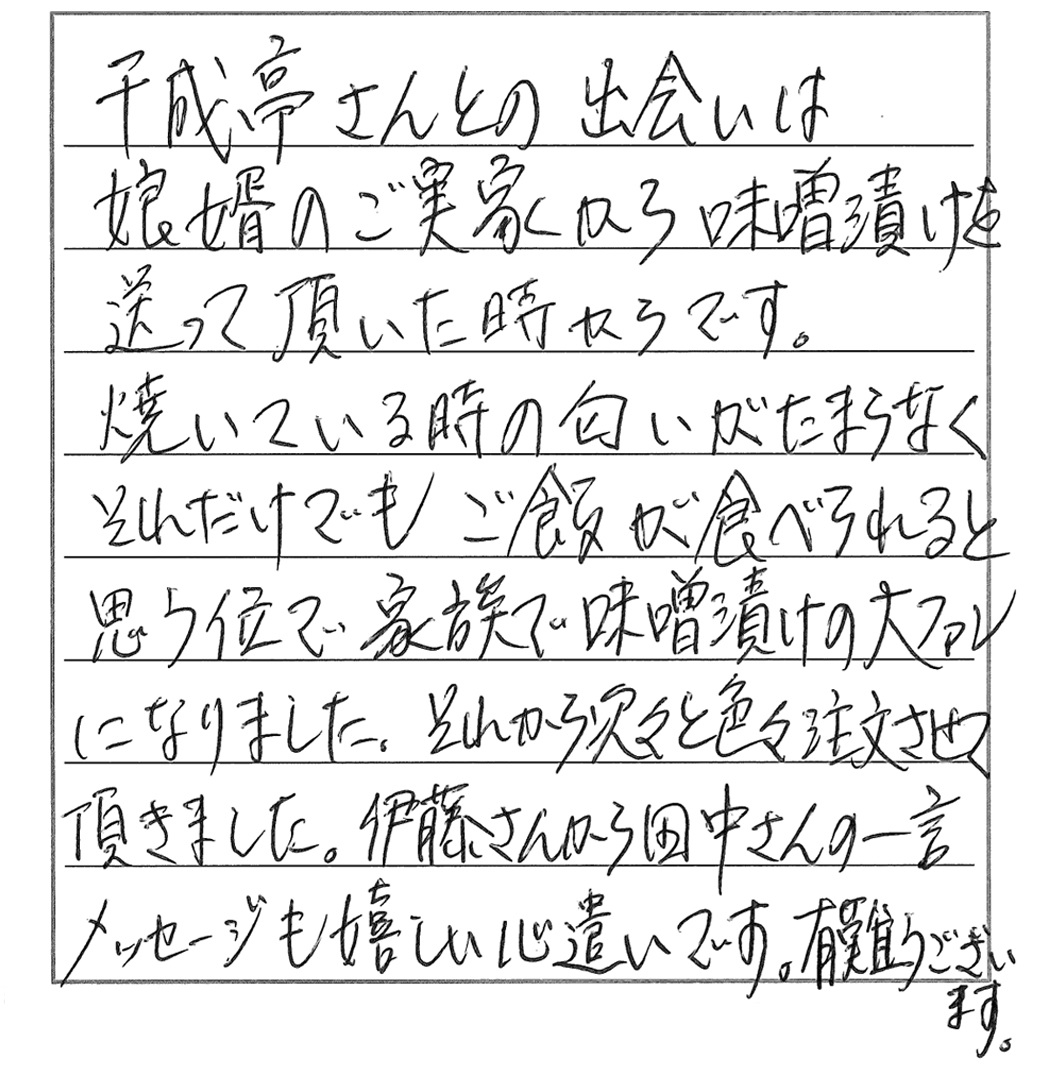 千成亭さんとの出会いは
娘婿のご実家から味噌漬けを
送って頂いた時からです。
焼いている時の匂いがたまらなく
それだけでもご飯が食べられると
思う位で家族で味噌漬けの大ファン
になりました。それから次々と色々注文させて
頂きました。伊藤さんから田中さんの一言
メッセージも嬉しい心遣いです。有難うござい
ます。